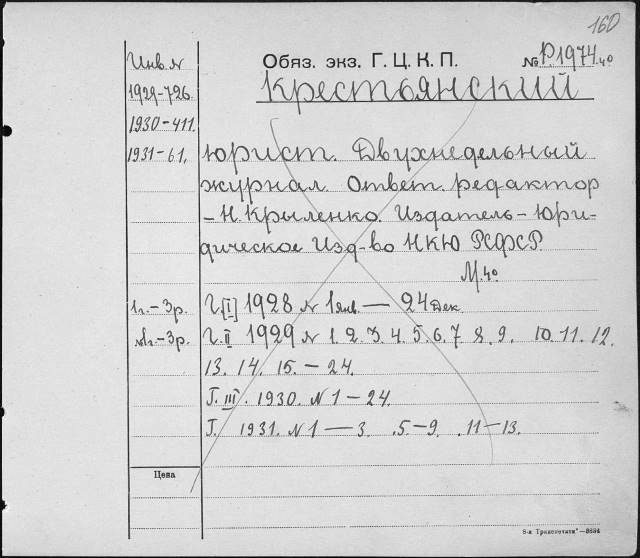 160
Обяз. экз. Г. Ц. К. П. № Р.1974.40
Инв. №
Крестьянский
1929-726.
1930-411.
1931-61.
юрист. Двухнедельный
журнал. Ответ. редактор
-Н. Крыленко. Издатель-Юри-
дическое Изд-во НКЮ РСФСР
М. 4º
1 г.-3р. Г.[I] 1928 № 1янв. — 24 дек.
1 г.-3р. Г. II 1929 № 1. 2. 3. 4. 5. 6. 7. 8. 9. 10. 11. 12.
13. 14. 15. — 24.
Г. III. 1930. № 1 — 24.
Г. 1931. № 1 — 3. .5-9. .11-13.
Цена